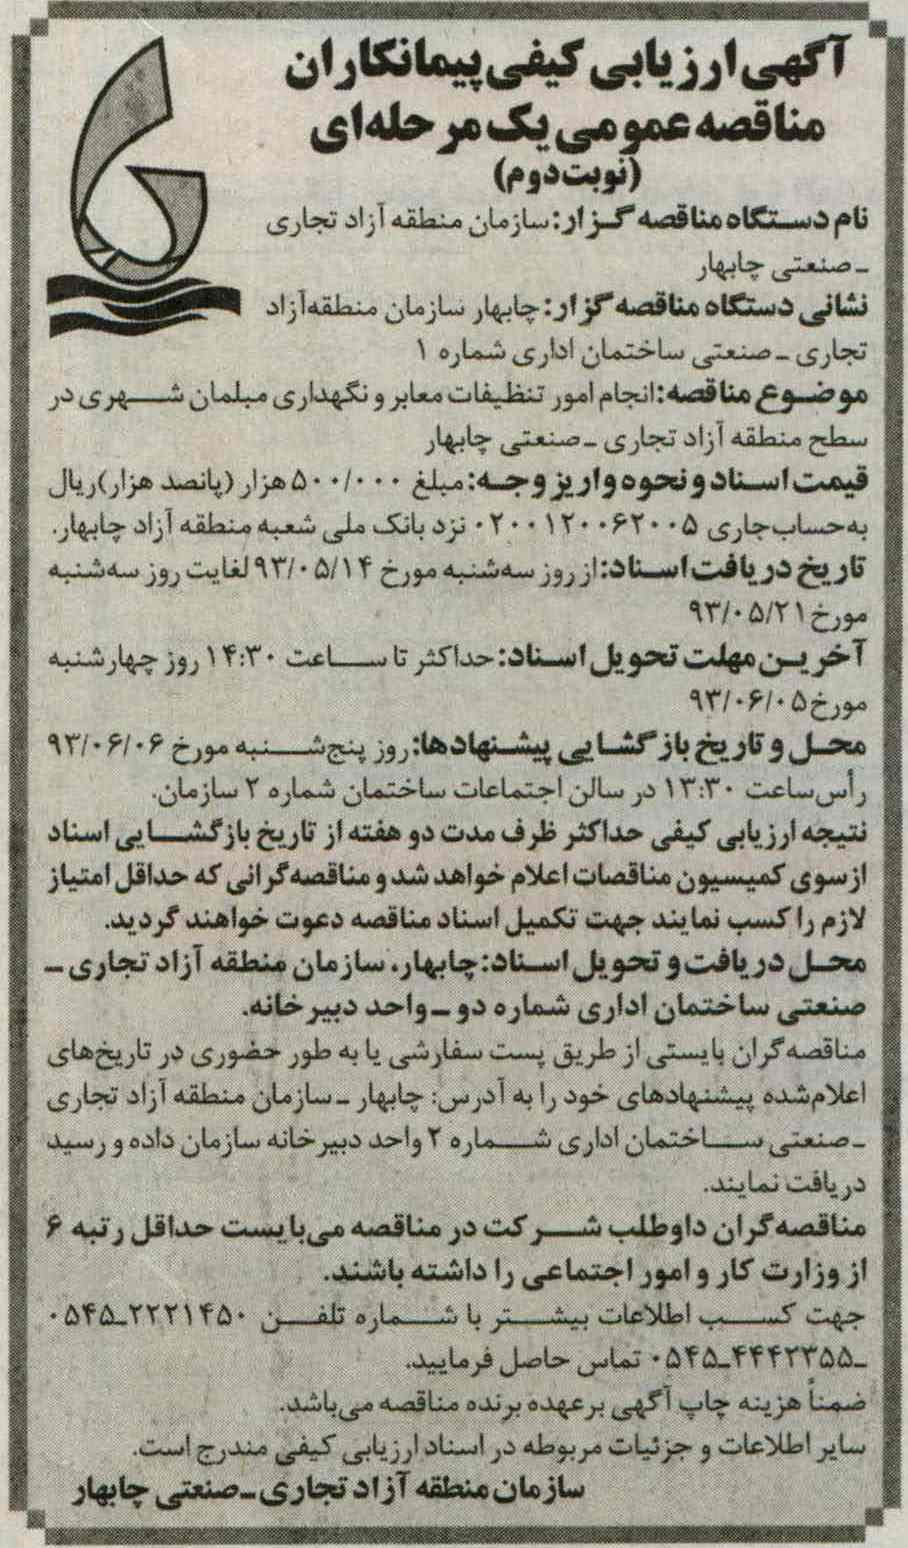 آگهی ارزیابی کیفی پیمانکاران
مناقصه عمومی یک مرحله‌ای
(نوبت دوم)
نام دستگاه مناقصه گزار: سازمان منطقه آزاد تجاری
ـ صنعتی چابهار
نشانی دستگاه مناقصه گزار: چابهار سازمان منطقه آزاد
تجاری ـ صنعتی ساختمان اداری شماره ۱
موضوع مناقصه: انجام امور تنظیفات معابر و نگهداری مبلمان شهری در
سطح منطقه آزاد تجاری ـ صنعتی چابهار
قیمت اسناد و نحوه واریز وجه: مبلغ ۵۰۰/۰۰۰ هزار (پانصد هزار) ریال
به‌حساب جاری ۰۲۰۰۱۲۰۰۶۲۰۰۵ نزد بانک ملی شعبه منطقه آزاد چابهار.
تاریخ دریافت اسناد: از روز سه‌شنبه مورخ ۹۳/۰۵/۱۴ لغایت روز سه‌شنبه
مورخ ۹۳/۰۵/۲۱
آخرین مهلت تحویل اسناد: حداکثر تا ساعت ۱۴:۳۰ روز چهارشنبه
مورخ ۹۳/۰۶/۰۵
محل و تاریخ بازگشایی پیشنهادها: روز پنج‌شنبه مورخ ۹۳/۰۶/۰۶
رأس ساعت ۱۳:۳۰ در سالن اجتماعات ساختمان شماره ۲ سازمان.
نتیجه ارزیابی کیفی حداکثر ظرف مدت دو هفته از تاریخ بازگشایی اسناد
از سوی کمیسیون مناقصات اعلام خواهد شد و مناقصه‌گرانی که حداقل امتیاز
لازم را کسب نمایند جهت تکمیل اسناد مناقصه دعوت خواهند گردید.
محل دریافت و تحویل اسناد: چابهار، سازمان منطقه آزاد تجاری ـ
صنعتی ساختمان اداری شماره دو ـ واحد دبیرخانه.
مناقصه‌گران بایستی از طریق پست سفارشی یا به طور حضوری در تاریخ‌های
اعلام‌شده پیشنهادهای خود را به آدرس: چابهار ـ سازمان منطقه آزاد تجاری
ـ صنعتی ساختمان اداری شماره ۲ واحد دبیرخانه سازمان داده و رسید
دریافت نمایند.
مناقصه‌گران داوطلب شرکت در مناقصه می‌بایست حداقل رتبه ۶
از وزارت کار و امور اجتماعی را داشته باشند.
جهت کسب اطلاعات بیشتر با شماره تلفن ۲۲۲۱۴۵۰ـ۰۵۴۵
ـ ۴۴۴۲۳۵۵ـ۰۵۴۵ تماس حاصل فرمایید.
ضمناً هزینه چاپ آگهی برعهده برنده مناقصه می‌باشد.
سایر اطلاعات و جزئیات مربوطه در اسناد ارزیابی کیفی مندرج است.
سازمان منطقه آزاد تجاری ـ صنعتی چابهار